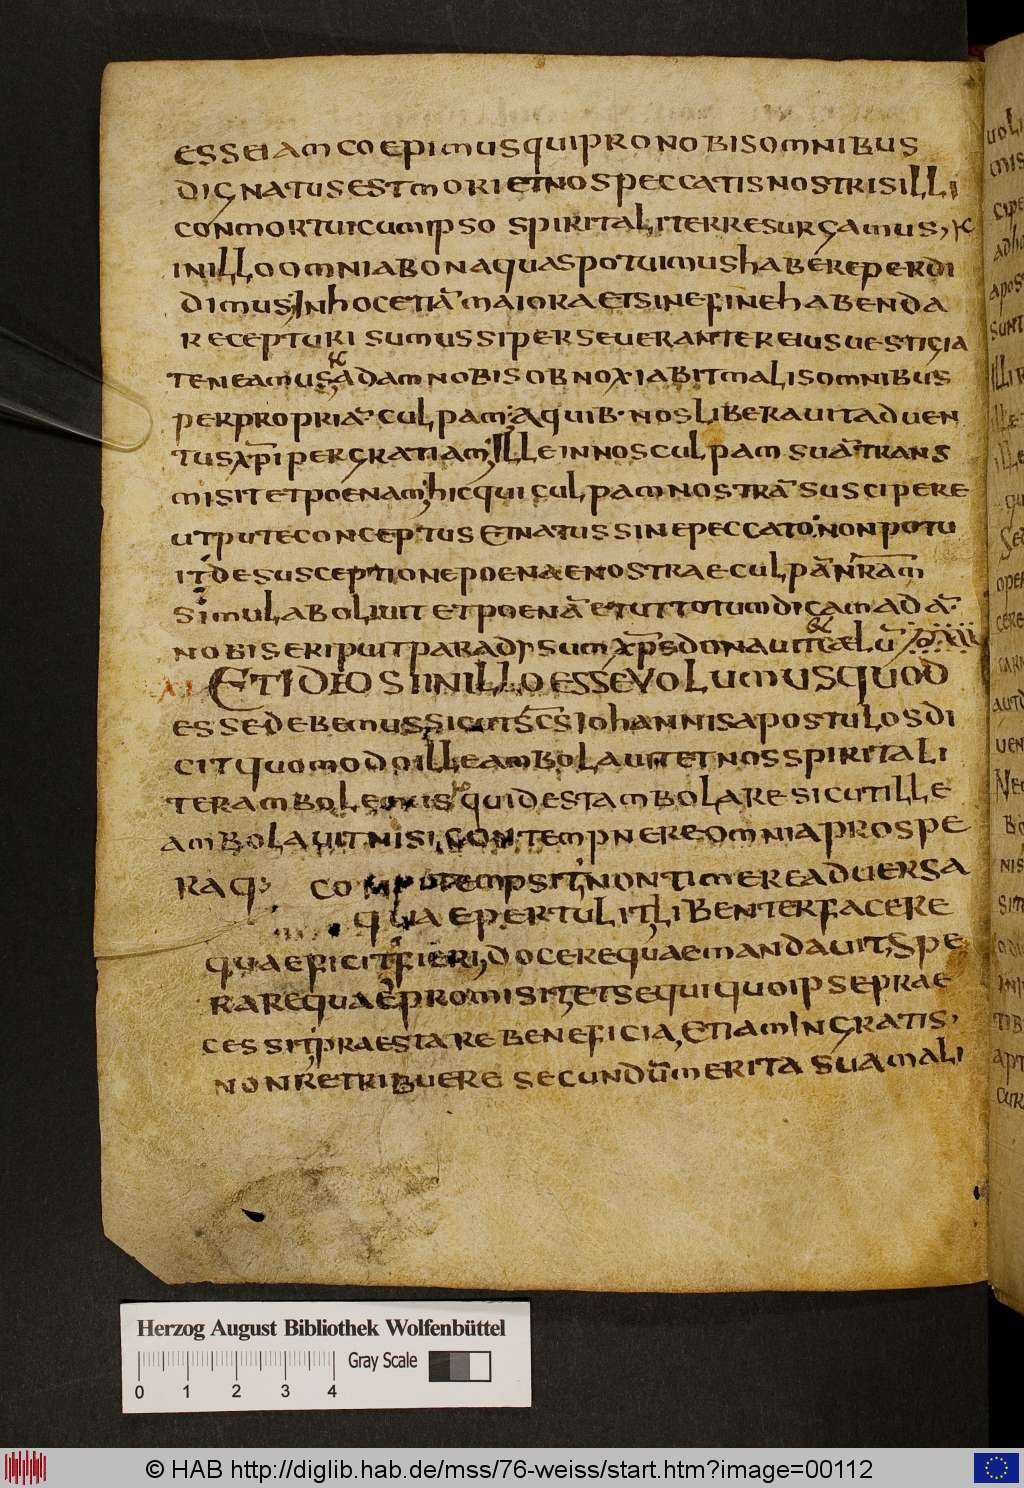 esse iam coepimus qui pro nobis omnibus
dignatus est mori et nos peccatis nostris illi
conmortui cum ipso spiritaliter resurgamus, 
in illo omnia bona quas potuimus habere perdi
dimus, in hoc etiā maiora et sine fine habenda
recepturi sumus si perseveranter eius vestigia
teneamus, adam nobis obnoxia bit malis omnibus
per propriā culpam; a quib· nos liberavit adven
tus xp̄i per gratiam; ille in nos culpam suā trans
misit et poenam; hic qui culpam nostrā suscipere
utpute conceptus et natus sine peccato non potu
it de susceptione poenae nostrae culpā nr̄am
simul abolivit et poenā et ut totum dicam adā
nobis eripuit paradisum xp̄s donavit caelū
XI Et ideo si in illo esse volumus quod
esse debemus sicut sc̄s iohannis apostulos di
cit quomodo ille ambolavit et nos spiritali
ter ambolemus quid est ambolare sicut ille
ambolavit nisi contempnere omnia prospe
raq; contempsit non timere adversa
quae pertulit libenter facere
quae ficit fieri, docere quae mandavit, spe
rare quae promisit et sequi quo ipse prae
cessit praestare beneficia, etiam ingratis,
non retribuere secundū merita sua mali
Herzog August Bibliothek Wolfenbüttel
Gray Scale
0 1 2 3 4
© HAB http://diglib.hab.de/mss/76-weiss/start.htm?image=00112